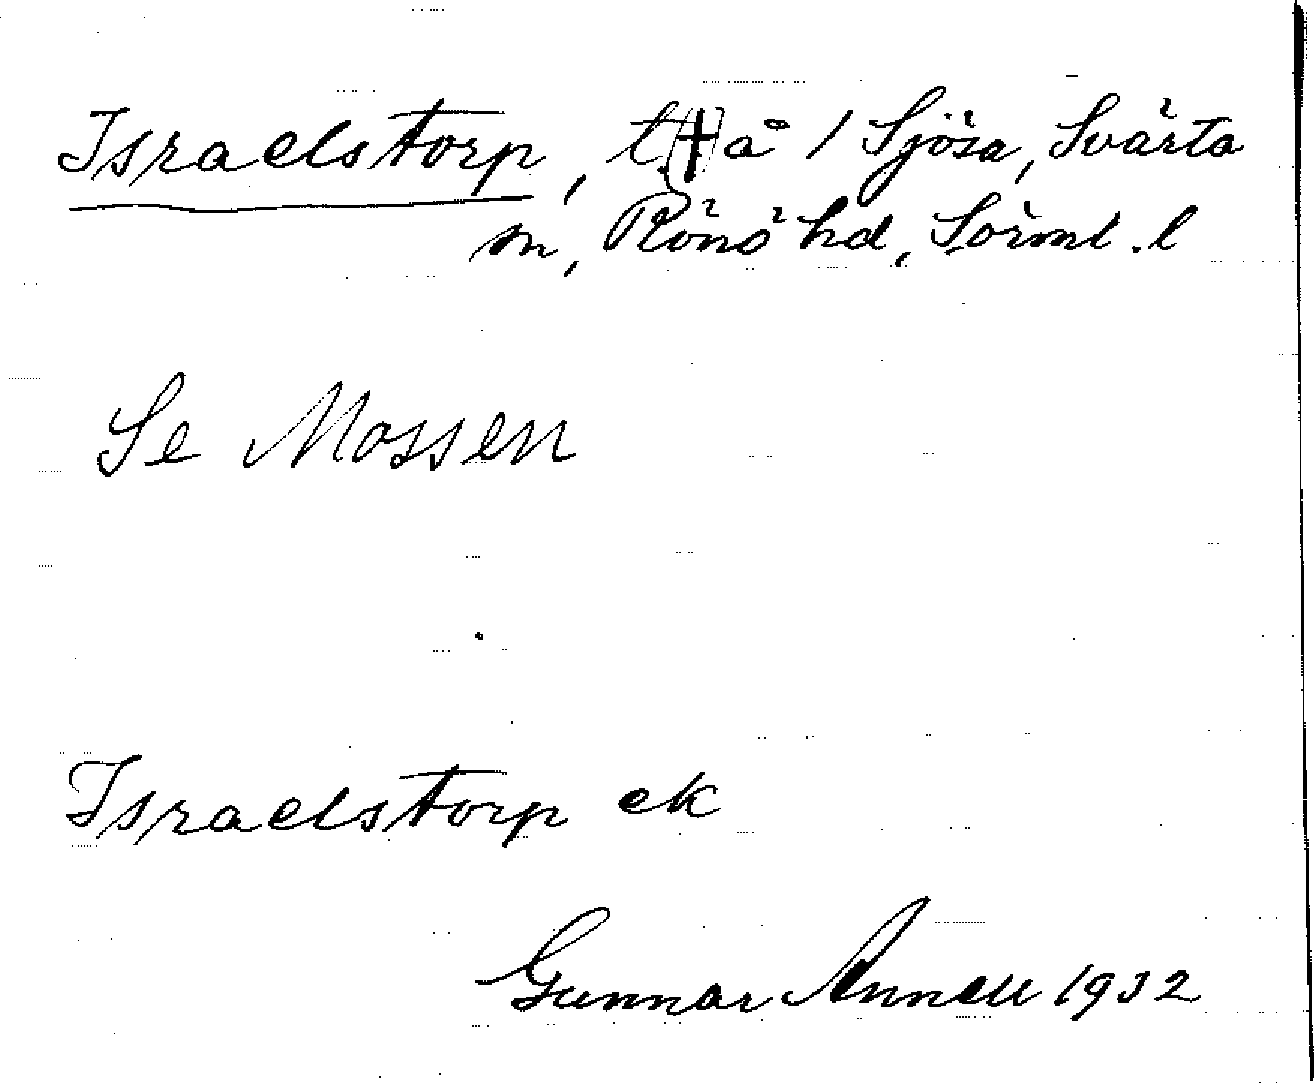 Israelstorp, t (†) å 1 Sjösa, Svärta
sn, Rönö hd, Sörml. l
Se Mossen
Israelstorp ek
Gunnar Annell 1932